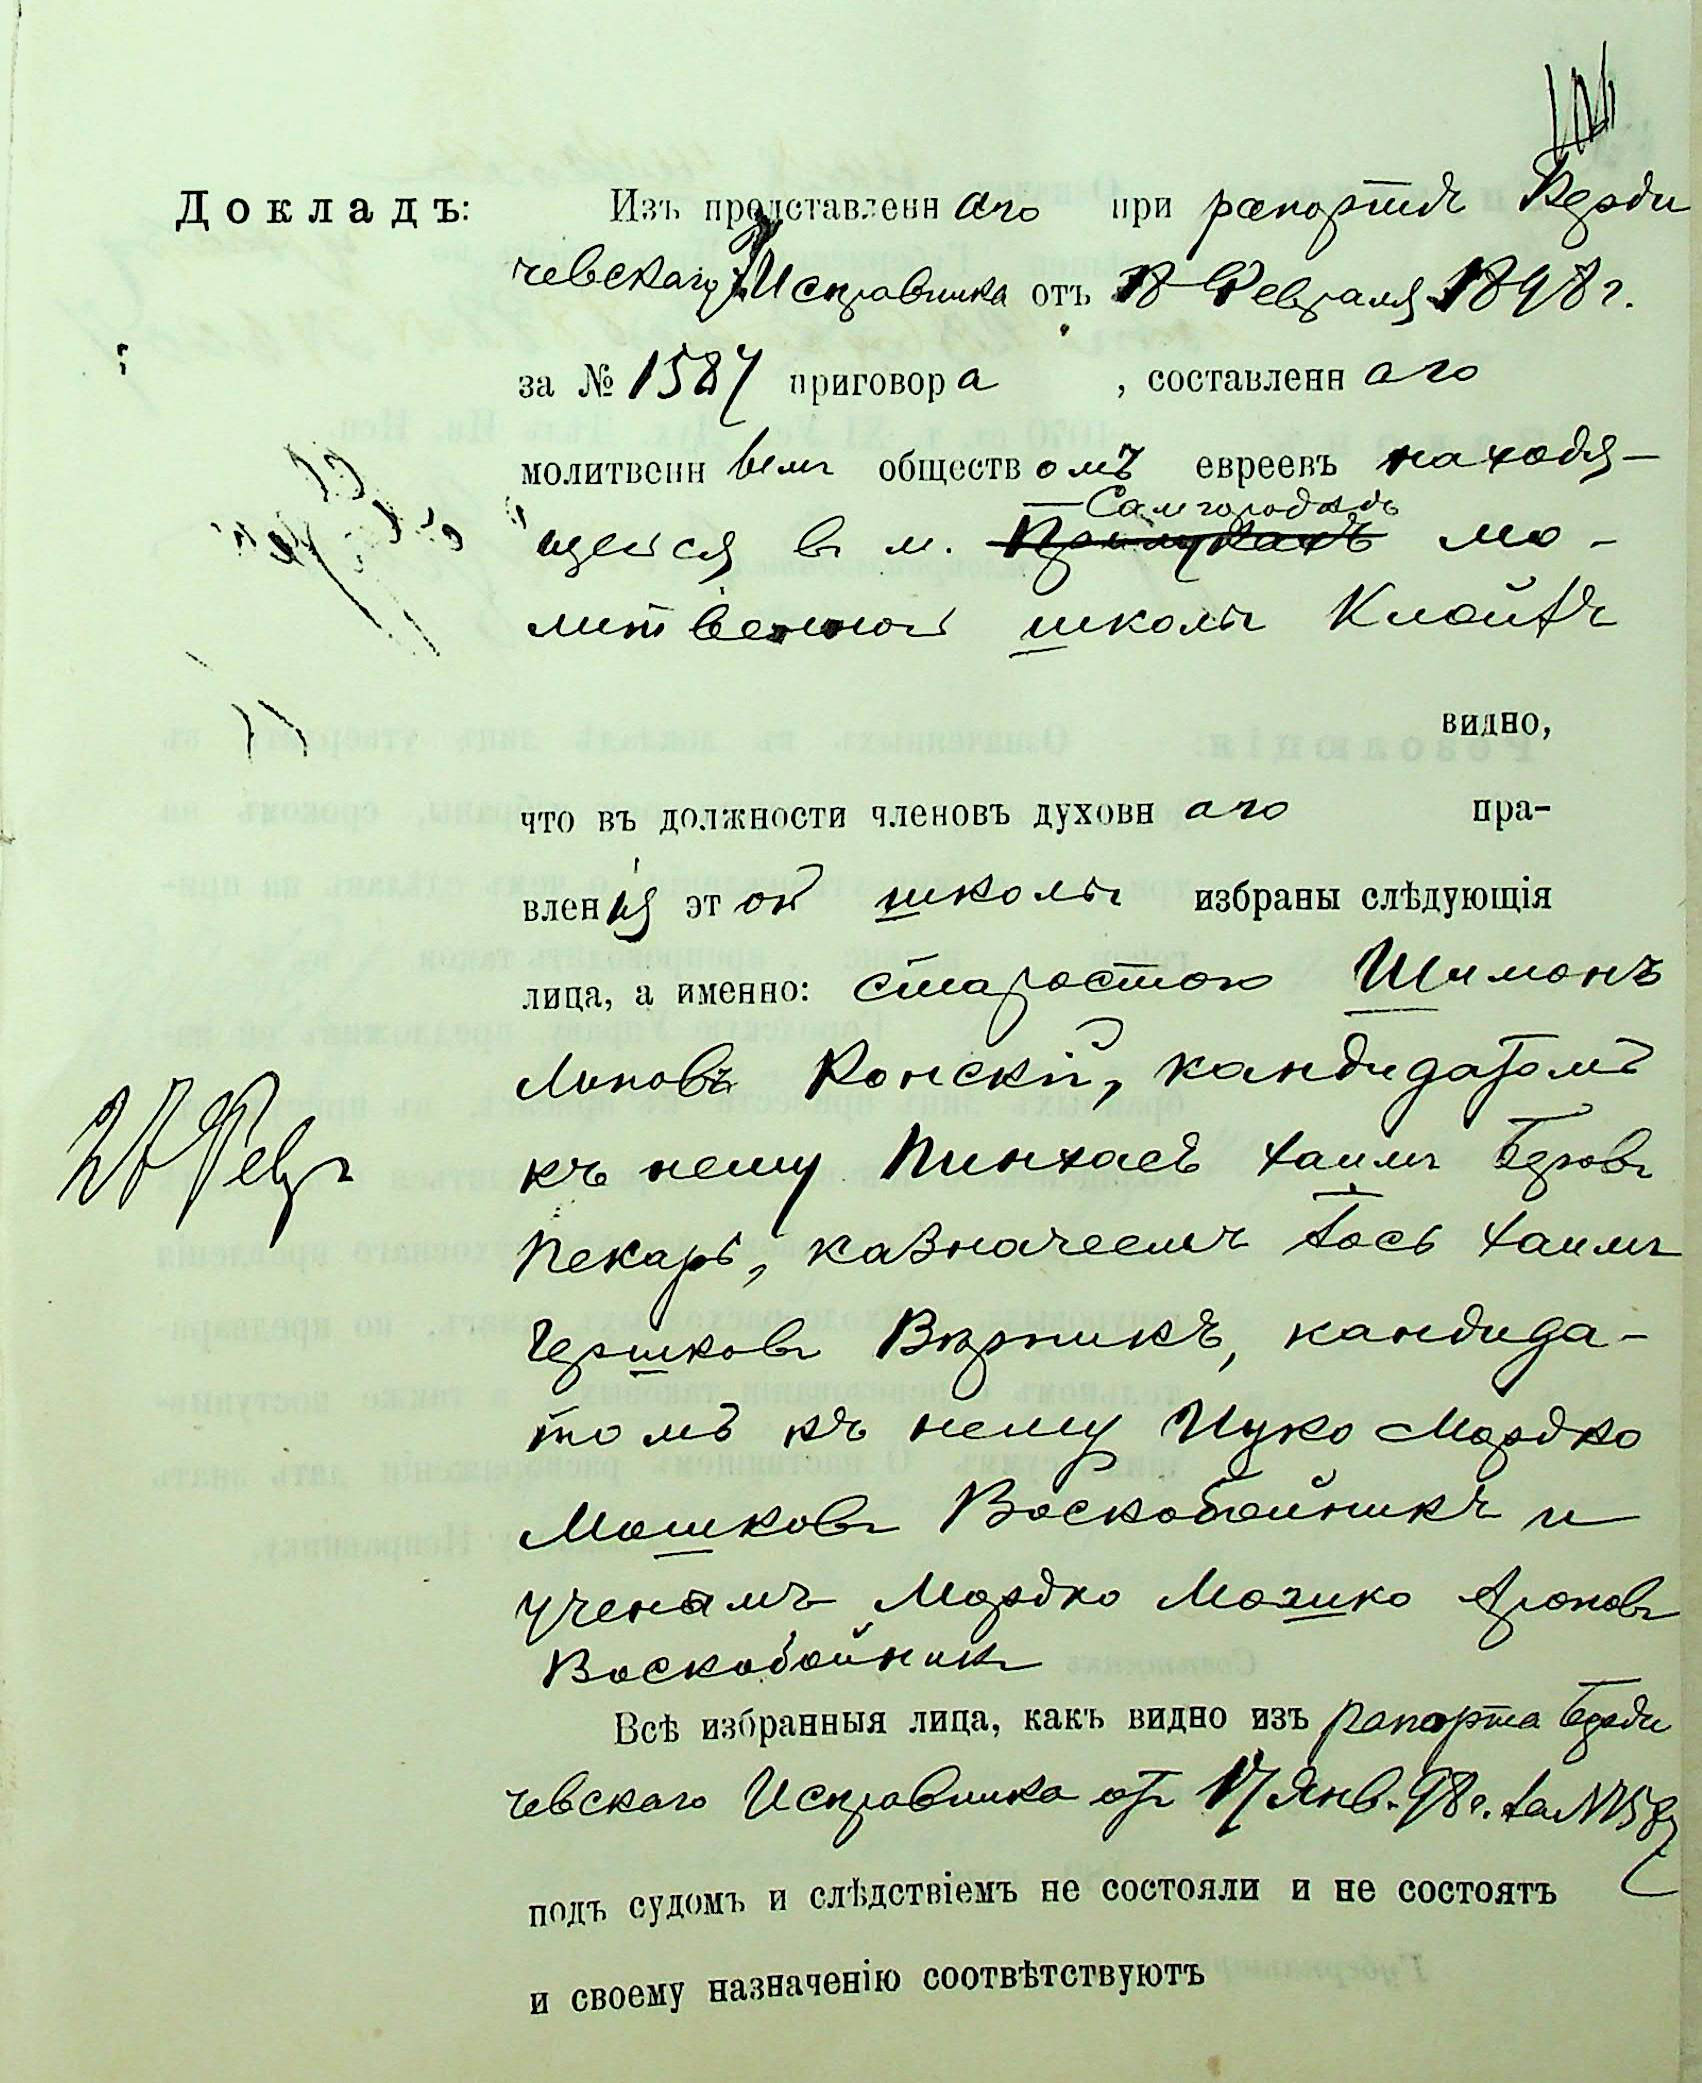 Докладъ: Изъ представленнаго при рапортѣ Берди
чевскаго Исправника отъ 18 Февраля 1898 г.
за № 1587 приговора, составленнаго
молитвеннымъ обществомъ евреевъ находя-
Самгородкѣ
щейся въ м. Прилукахъ мо-
литвенной школы Клойзъ
видно,
что въ должности членовъ духовнаго пра-
вленія этой школы избраны слѣдующія
лица, а именно: старостою Шимонъ
Липовъ Конскій, кандидатомъ
къ нему Пинхасъ Хаимъ Беровъ
Пекарь, казначеемъ Іось Хаимъ
Гершковъ Вѣрникъ, кандида-
томъ къ нему Ицко Мордко
Мошковъ Воскобойникъ и
ученымъ Мордко Мошко Ароновъ
Воскобойникъ
Всѣ избранныя лица, какъ видно изъ рапорта Берди
чевскаго Исправника отъ 17 Янв. 98 г. за № 1587
подъ судомъ и слѣдствіемъ не состояли и не состоятъ
и своему назначенію соотвѣтствуютъ